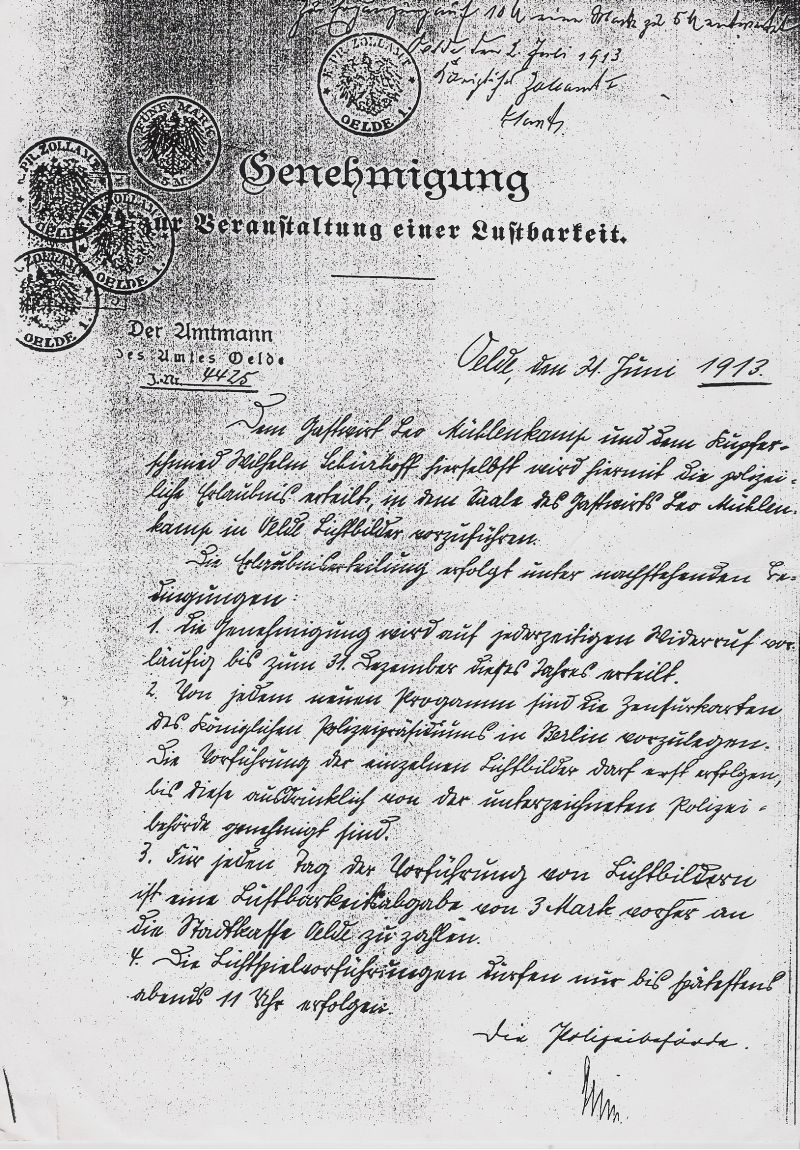 Zur Ergänzung auf 10 M eine Marke zu 5 M entwertet
Oelde den 2. Juli 1913
Königliches Zollamt I
K. PR. ZOLLAMT
OELDE 1.
FÜNF MARK
5 M.
K. PR. ZOLLAMT
OELDE 1.
K. PR. ZOLLAMT
OELDE 1.
K. PR. ZOLLAMT
OELDE 1.
Genehmigung
zur Veranstaltung einer Lustbarkeit.
Der Amtmann
des Amtes Oelde
J.-Nr. 4425
Oelde, den 21. Juni 1913.
Dem Gastwirt Leo Mühlenkamp und dem Kupfer-
schmied Wilhelm hierselbst wird hiermit die polizei-
liche Erlaubnis erteilt, in dem Saale des Gastwirts Leo Mühlen-
kamp in Oelde Lichtbilder vorzuführen.
Die Erlaubniserteilung erfolgt unter nachstehenden Be-
dingungen:
1. Die Genehmigung wird auf jederzeitigen Widerruf vor-
läufig bis zum 31. Dezember dieses Jahres erteilt.
2. Von jedem neuen Progamm sind die Zensurkarten
des Königlichen Polizeipräsidiums in Berlin vorzulegen.
Die Vorführung der einzelnen Lichtbilder darf erst erfolgen,
bis diese ausdrücklich von der unterzeichneten Polizei-
behörde genehmigt sind.
3. Für jeden Tag der Vorführung von Lichtbildern
ist eine Lustbarkeitsabgabe von 3 Mark vorher an
die Stadtkasse Oelde zu zahlen.
4. Die Lichtspielvorführungen dürfen nur bis spätestens
abends 11 Uhr erfolgen.
Die Polizeibehörde.